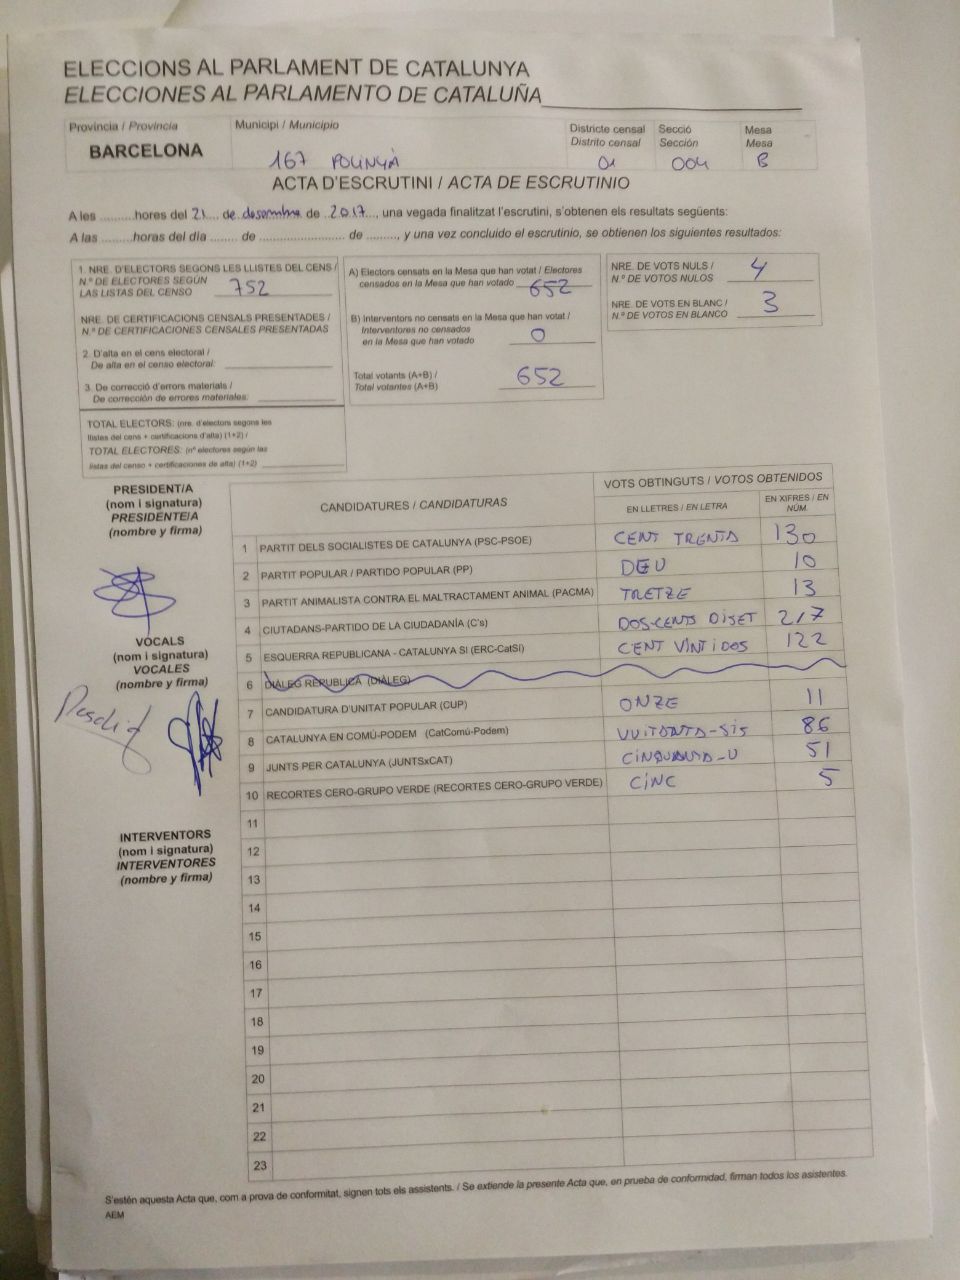 ELECCIONS AL PARLAMENT DE CATALUNYA
ELECCIONES AL PARLAMENTO DE CATALUÑA
Província / Provincia
BARCELONA
Municipi / Municipio
167 POLINYÀ
Districte censal
Distrito censal
01
Secció
Sección
004
Mesa
Mesa
B
ACTA D'ESCRUTINI / ACTA DE ESCRUTINIO
A les ..........hores del 21 de desembre de 2017..., una vegada finalitzat l'escrutini, s'obtenen els resultats següents:
A las .........horas del dia ........ de ........................ de ........., y una vez concluido el escrutinio, se obtienen los siguientes resultados:
1. NRE. D'ELECTORS SEGONS LES LLISTES DEL CENS /
N.º DE ELECTORES SEGÚN
LAS LISTAS DEL CENSO 752
NRE. DE CERTIFICACIONS CENSALS PRESENTADES /
N.º DE CERTIFICACIONES CENSALES PRESENTADAS
2. D'alta en el cens electoral /
De alta en el censo electoral:
3. De correcció d'errors materials /
De corrección de errores materiales:
TOTAL ELECTORS: (nre. d'electors segons les
llistes del cens + certificacions d'alta) (1+2) /
TOTAL ELECTORES: (nº electores según las
listas del censo + certificaciones de alta) (1+2)
A) Electors censats en la Mesa que han votat / Electores
censados en la Mesa que han votado 652
B) Interventors no censats en la Mesa que han votat /
Interventores no censados
en la Mesa que han votado 0
Total votants (A+B) /
Total votantes (A+B) 652
NRE. DE VOTS NULS /
N.º DE VOTOS NULOS 4
NRE. DE VOTS EN BLANC /
N.º DE VOTOS EN BLANCO 3
PRESIDENT/A
(nom i signatura)
PRESIDENTE/A
(nombre y firma)
VOCALS
(nom i signatura)
VOCALES
(nombre y firma)
INTERVENTORS
(nom i signatura)
INTERVENTORES
(nombre y firma)
CANDIDATURES / CANDIDATURAS
VOTS OBTINGUTS / VOTOS OBTENIDOS
EN LLETRES / EN LETRA
EN XIFRES / EN NÚM.
1 PARTIT DELS SOCIALISTES DE CATALUNYA (PSC-PSOE) CENT TRENTA 130
2 PARTIT POPULAR / PARTIDO POPULAR (PP) DEU 10
3 PARTIT ANIMALISTA CONTRA EL MALTRACTAMENT ANIMAL (PACMA) TRETZE 13
4 CIUTADANS-PARTIDO DE LA CIUDADANÍA (C's) DOS-CENTS DISET 217
5 ESQUERRA REPUBLICANA - CATALUNYA SI (ERC-CatSI) CENT VINTIDOS 122
6 DIÀLEG REPÚBLICA (DIÀLEG)
7 CANDIDATURA D'UNITAT POPULAR (CUP) ONZE 11
8 CATALUNYA EN COMÚ-PODEM (CatComú-Podem) VUITANTA-SIS 86
9 JUNTS PER CATALUNYA (JUNTSxCAT) CINQUANTA-U 51
10 RECORTES CERO-GRUPO VERDE (RECORTES CERO-GRUPO VERDE) CINC 5
11
12
13
14
15
16
17
18
19
20
21
22
23
S'estén aquesta Acta que, com a prova de conformitat, signen tots els assistents. / Se extiende la presente Acta que, en prueba de conformidad, firman todos los asistentes.
AEM